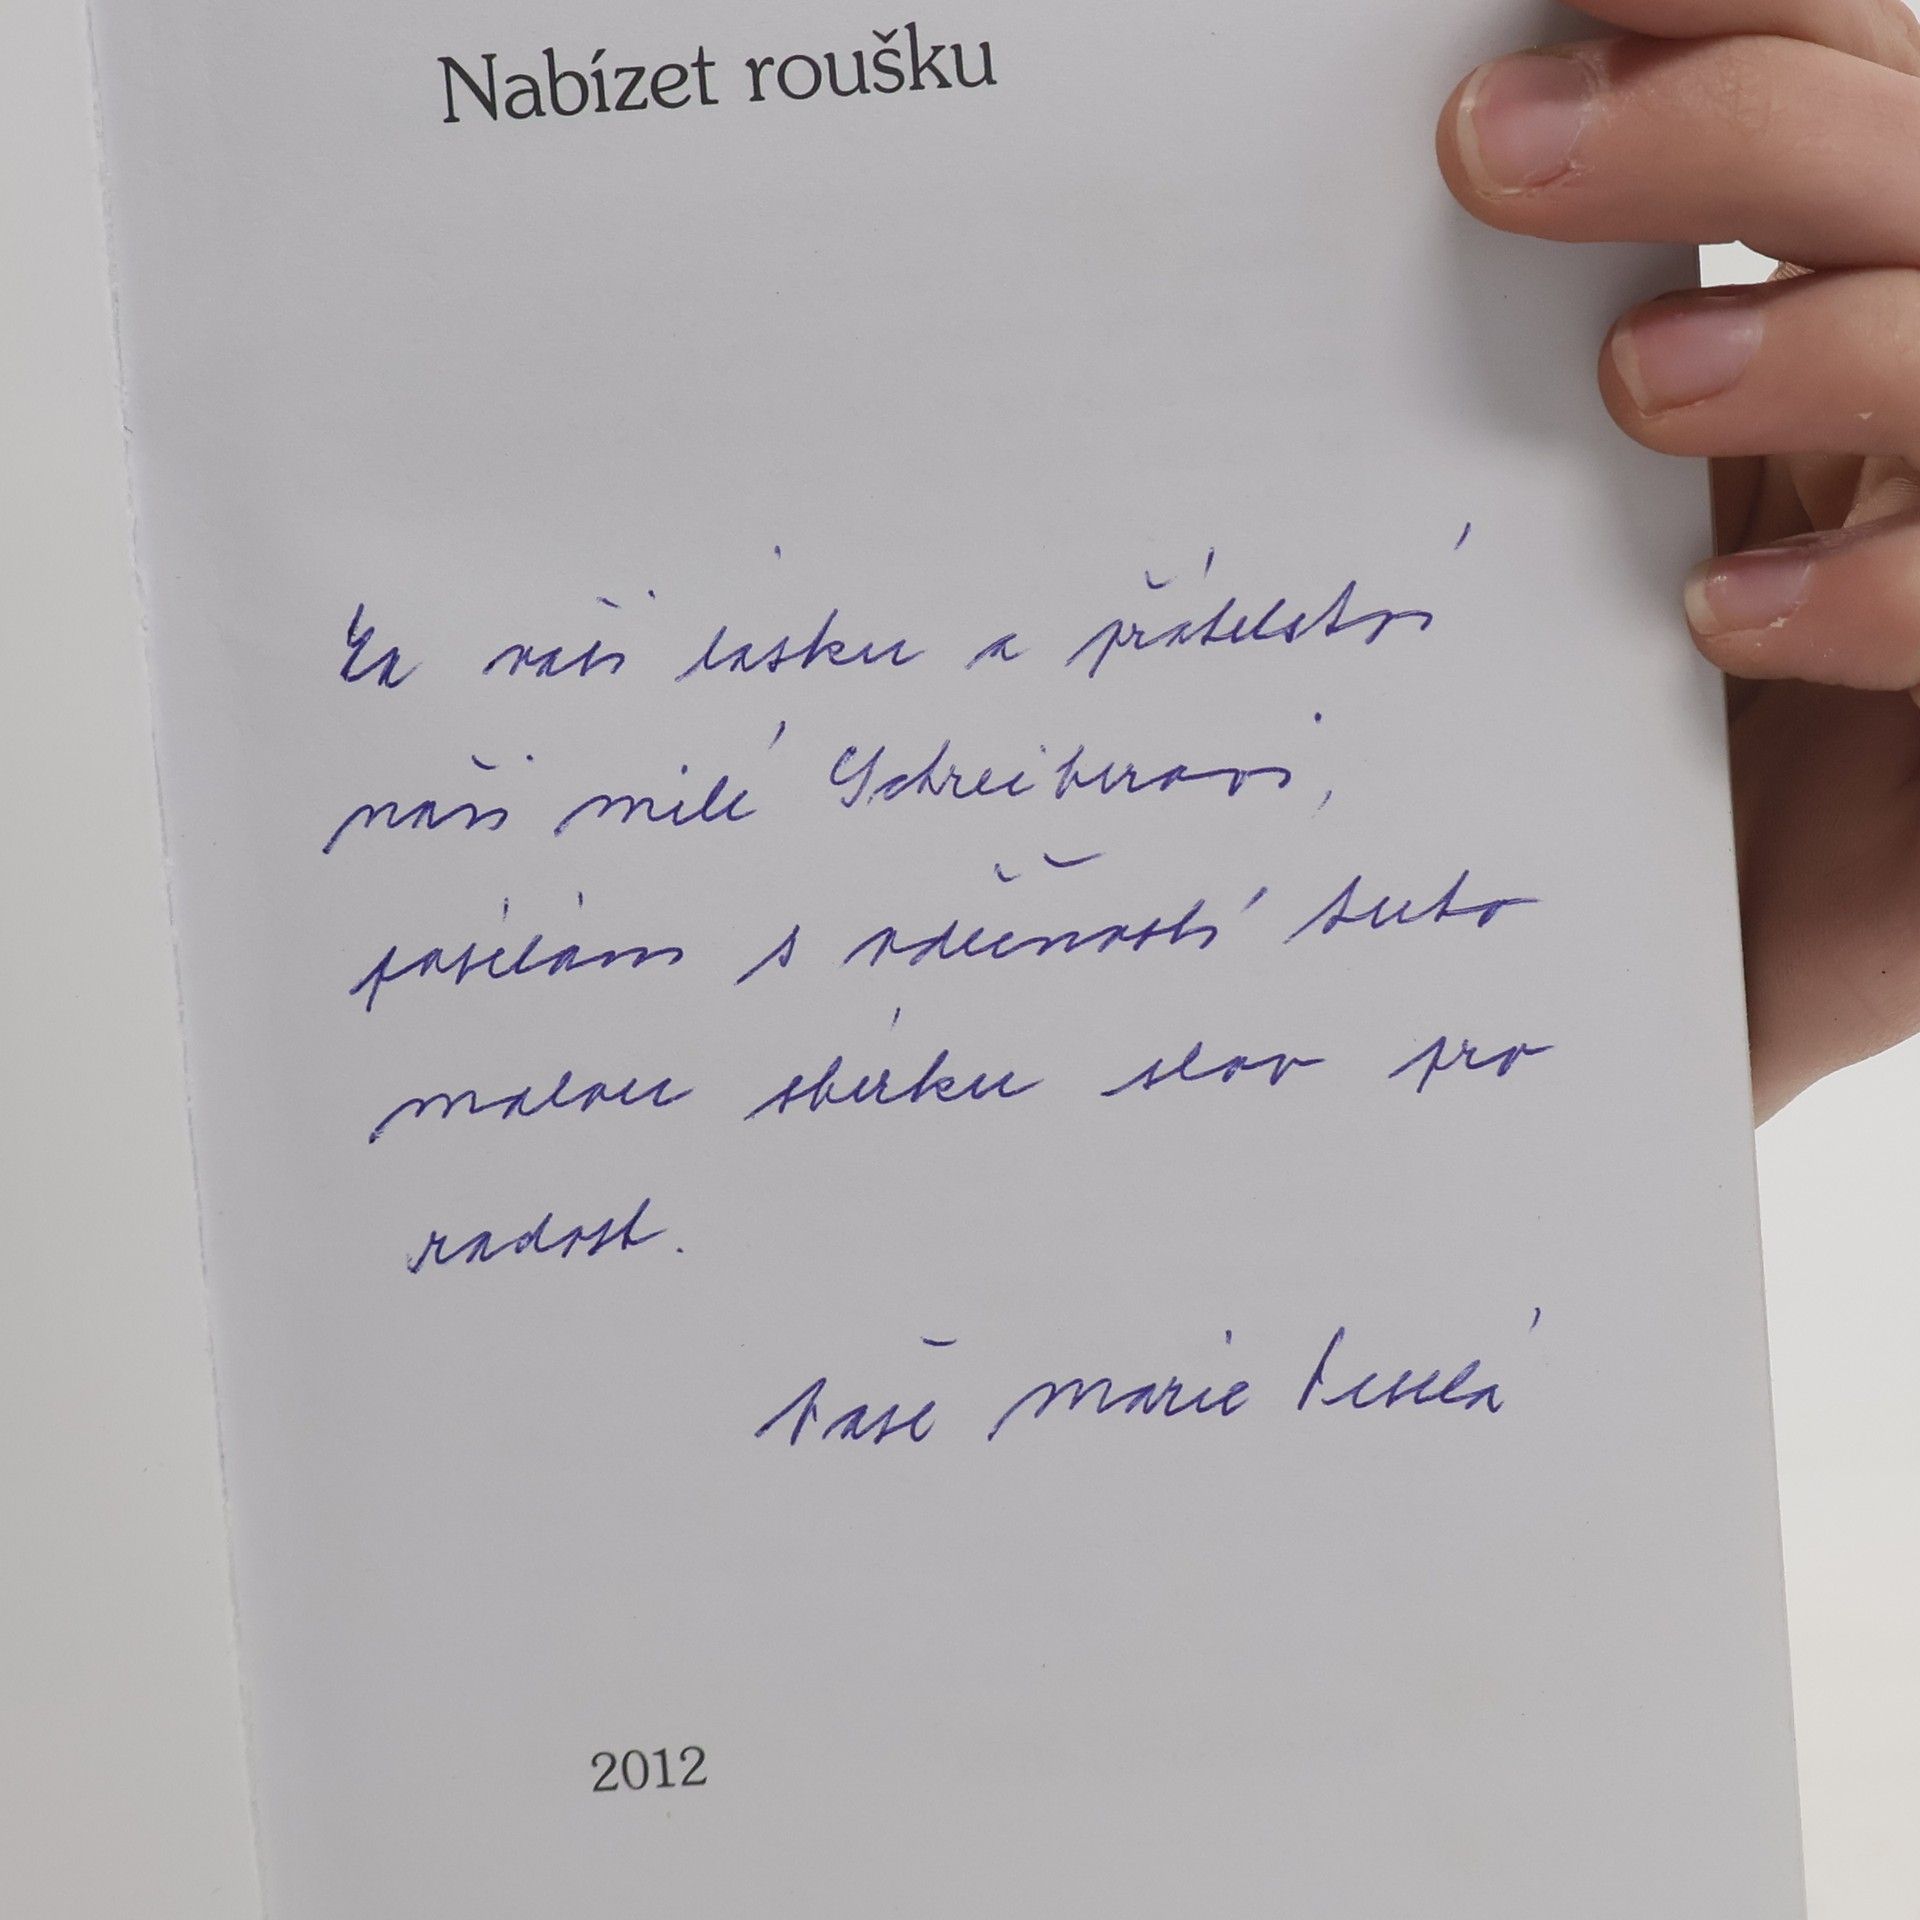 Nabízet roušku
Za vaši lásku a přátelství
naši milé Schreiberovi,
posílám s vděčností tuto
malou sbírku slov pro
radost.
Vaše Marie Veselá
2012